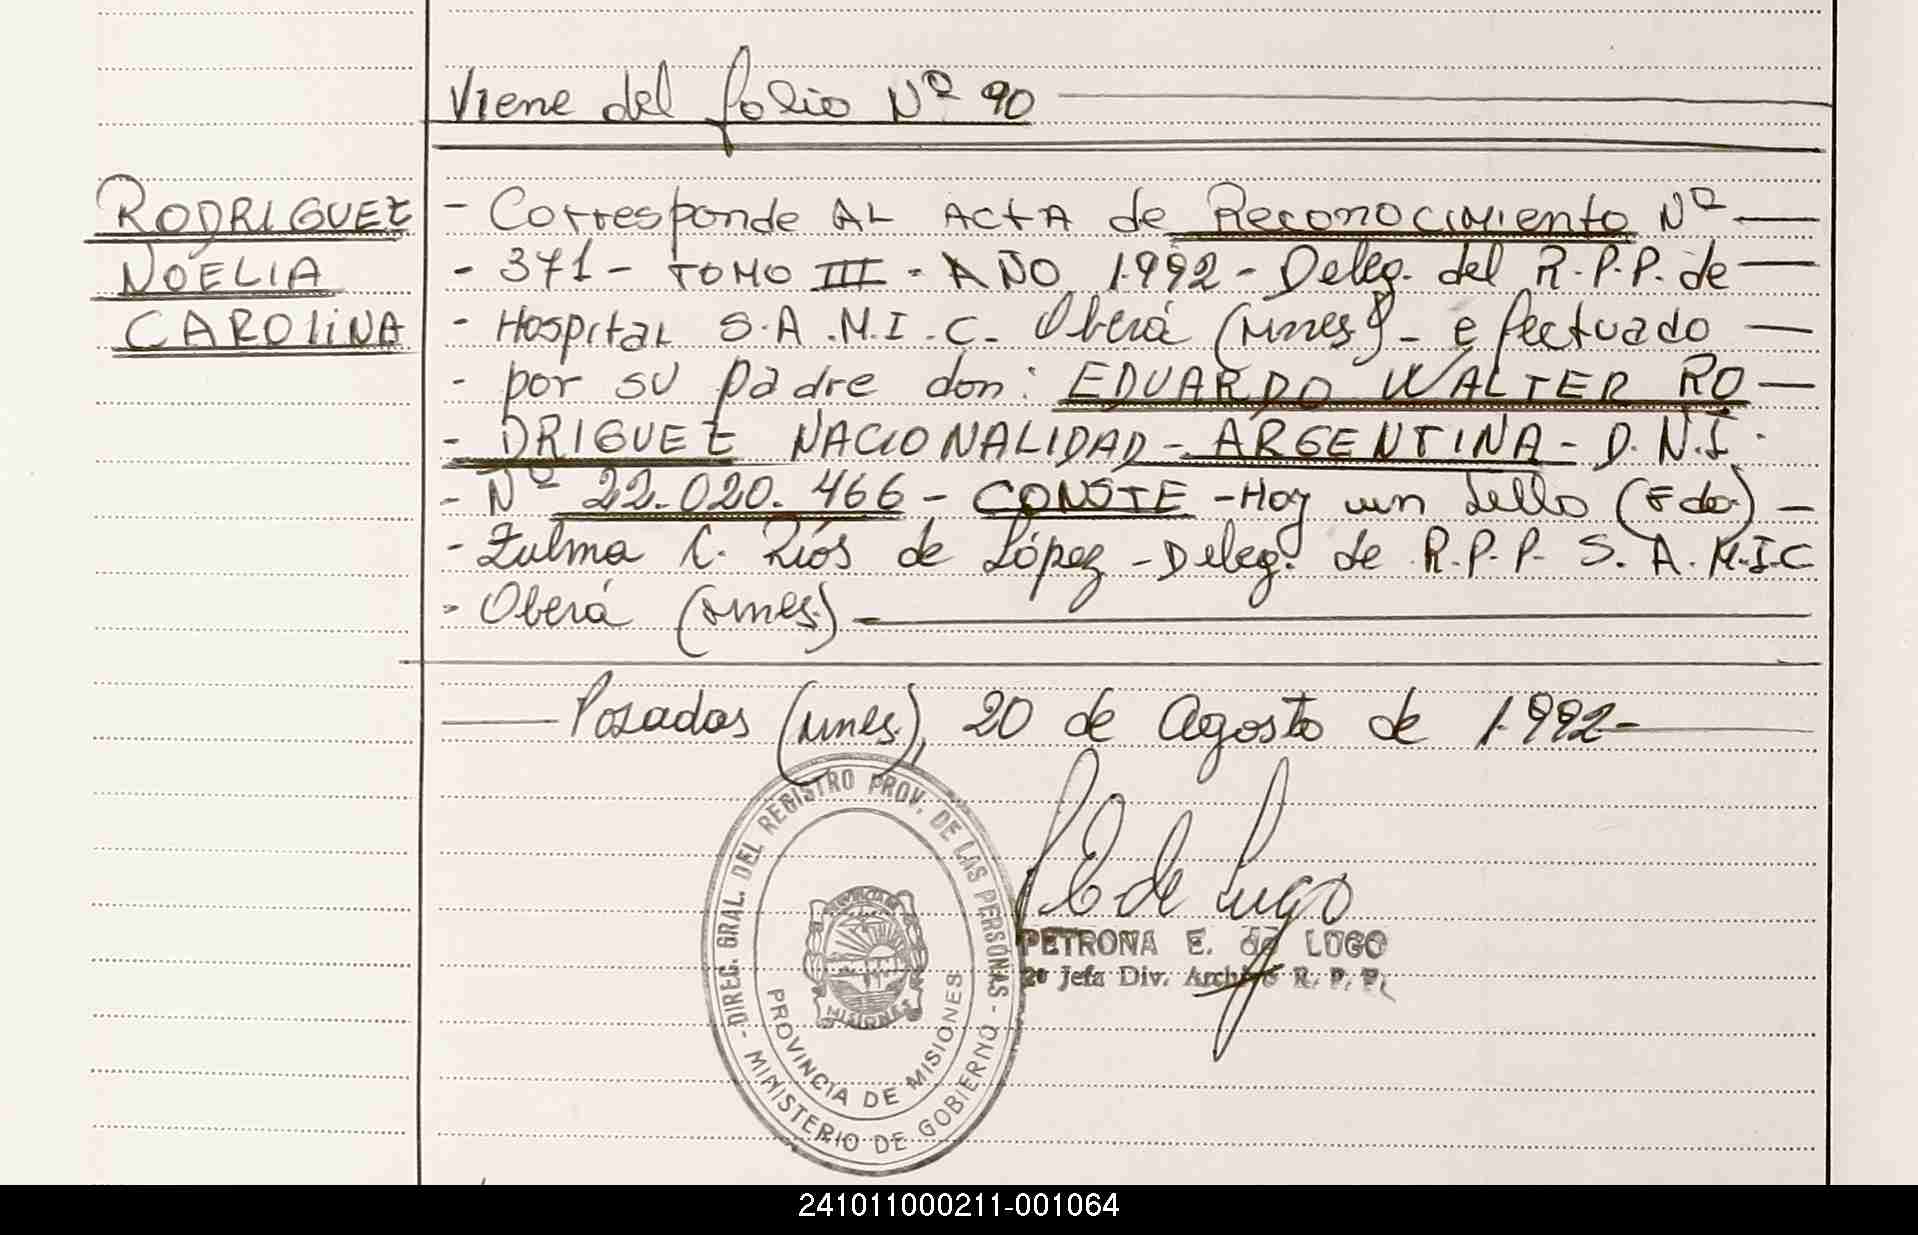 Viene del folio Nº 90
RODRIGUEZ
NOELIA
CAROLINA
- Corresponde AL ACTA de Reconocimiento Nº
- 371 - TOMO III - AÑO 1.992 - Deleg. del R.P.P. de
- Hospital S.A.M.I.C. Oberá (Mnes) - efectuado
- por su padre don: EDUARDO WALTER RO
- DRIGUEZ NACIONALIDAD - ARGENTINA - D.N.I.
- Nº 22.020.466 - CONSTE - Hay un sello (Fdo.) -
- Zulma C. Ríos de López - Deleg. de R.P.P. S.A.M.I.C
- Oberá (Mnes.)
Posadas (Mnes.), 20 de Agosto de 1.992-
- DIREC. GRAL. DEL REGISTRO PROV. DE LAS PERSONAS -
MINISTERIO DE GOBIERNO
PROVINCIA DE MISIONES
MISIONES
de Lugo
PETRONA E. de LUGO
2º Jefa Div. Archivo R. P. P.
241011000211-001064